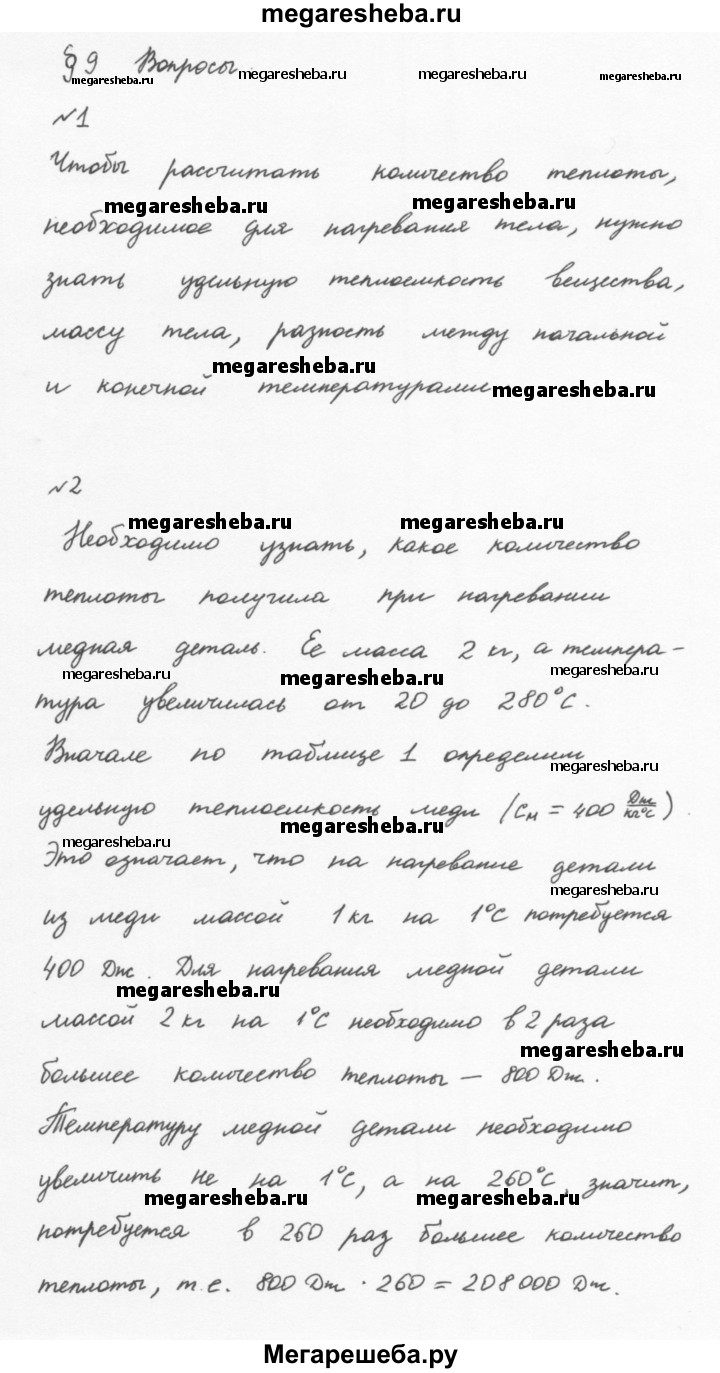 megaresheba.ru
§9 Вопросы
megaresheba.ru megaresheba.ru megaresheba.ru megaresheba.ru
№1
Чтобы рассчитать количество теплоты,
megaresheba.ru megaresheba.ru
необходимое для нагревания тела, нужно
знать удельную теплоемкость вещества,
массу тела, разность между начальной
megaresheba.ru
и конечной температурами
megaresheba.ru
№2
megaresheba.ru megaresheba.ru
Необходимо узнать, какое количество
теплоты получила при нагревании
медная деталь. Ее масса 2 кг, а темпера-
megaresheba.ru megaresheba.ru megaresheba.ru
тура увеличилась от 20 до 280°С.
Вначале по таблице 1 определим
megaresheba.ru
удельную теплоемкость меди (см = 400 Дж/кг°С).
megaresheba.ru megaresheba.ru
Это означает, что на нагревание детали
megaresheba.ru
из меди массой 1 кг на 1°С потребуется
400 Дж. Для нагревания медной детали
megaresheba.ru
массой 2 кг на 1°С необходимо в 2 раза
megaresheba.ru
большее количество теплоты — 800 Дж.
Температуру медной детали необходимо
увеличить не на 1°С, а на 260°С, значит,
megaresheba.ru megaresheba.ru
потребуется в 260 раз большее количество
теплоты, т.е. 800 Дж · 260 = 208000 Дж.
Мегарешеба.ру